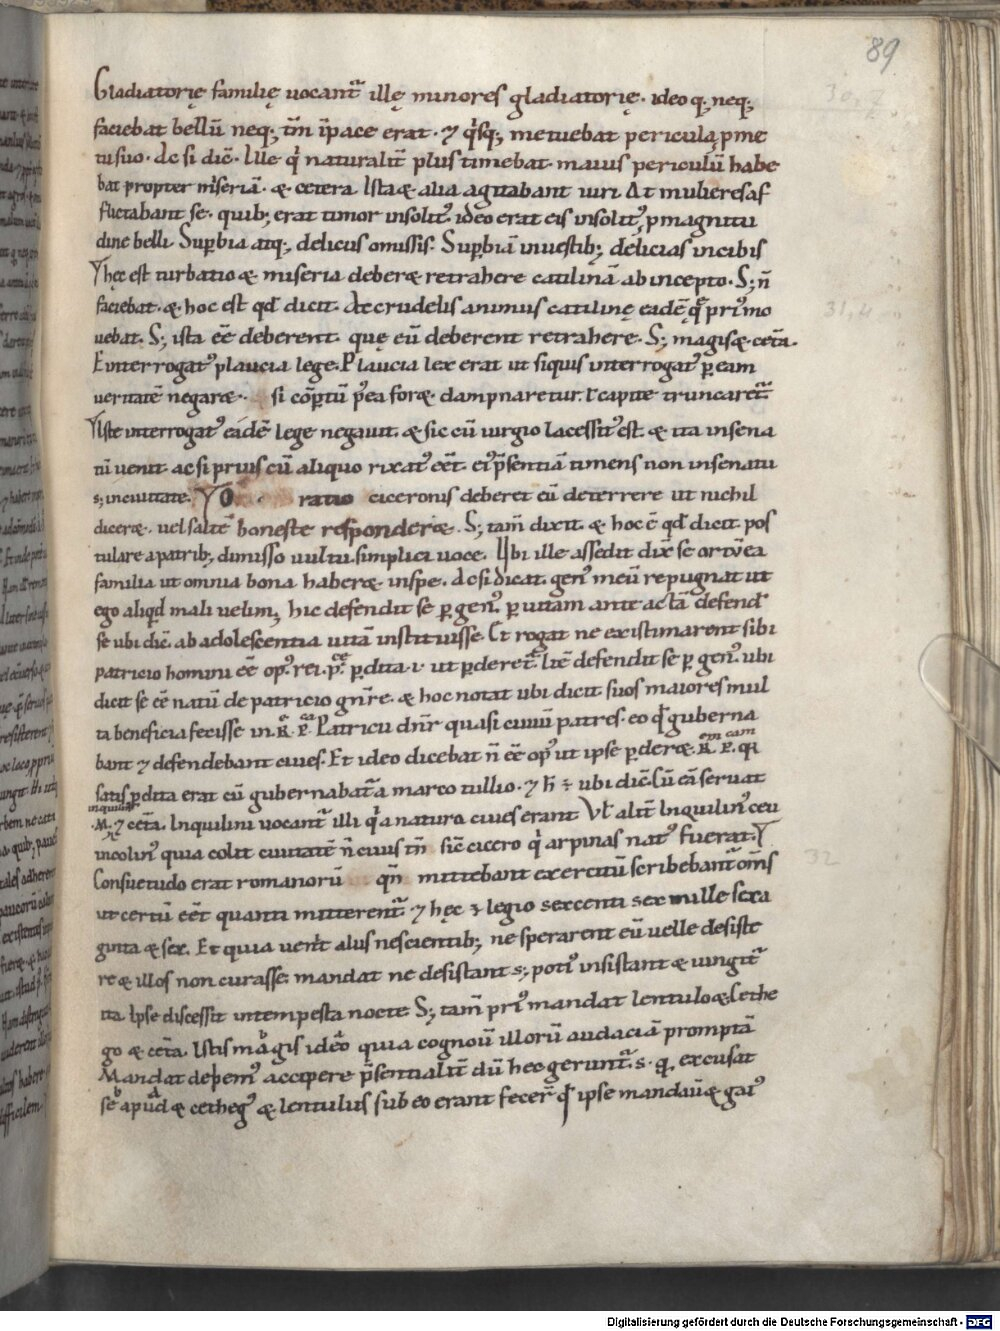 89
Gladiatorię familię uocant̄ illę minores gladiatorię. ideo q; neq;
faciebat bellū neq; tm̄ īpace erat. ⁊ q̓sq; metuebat pericula pme
tu suo. Ac si dic̄. Ille q̓ naturalit̄ plus timebat. maius periculū habe
bat propter miseriā. & cetera. Ista & alia agitabant uiri. At mulieres af
flictabant se. quib; erat timor insolit᷒. ideo erat eis insolit᷒, p magnitu
dine belli. Supbia atq; deliciis omissis. Supbiā inuestib; delicias incibis
hęc est turbatio & miseria deberæ retrahere catilinā ab incepto. S; n̄
faciebat. & hoc est qd̄ dicit. At crudelis animus catilinę eadē q̨ pri᷒ mo
uebat. S; ista eē deberent. quę eū deberent retrahere. S; magis & cet̄a.
E interrogat᷒ plaucia lege. Plaucia lex erat ut siquis interrogat᷒ p eam
ueritatē negaræ. si cōptū p̄ea foræ. dampnaretur. ł capite truncaret̄
Iste interrogat᷒ eadē lege negauit. & sic cū uirgio lacessit᷒ est. & ita insena
tū uenit ac si prius cū aliquo rixat᷒ eēt. ei᷒ p̄sentiā timens non insenatu
s; inciuitate. Oratio ciceronis deberet eū deterrere ut nichil
diceræ. uel saltē honeste responderæ. S; tam̄ dixit. & hoc ē qd̄ dicit pos
tulare a patrib; dimisso uultu. simplici uoce. Ubi ille assedit dix̄ se ortū ea
familia ut omnia bona haberæ. inspe. Ac si dicat. gen᷒ meū repugnat ut
ego aliqd̄ mali uelim, hic defendit se p gen᷒. p uitam ante actā defend̄
se ubi dic̄. ab adolescentia uitā instituisse. Et rogat ne existimarent sibi
patricio homini eē op᷒. rei. p̄. pdita. i. ut pderet̄. Itē defendit se p gen᷒. ubi
dicit se eē natū de patricio gn̄re. & hoc notat ubi dicit suos maiores mul
ta beneficia fecisse in. R̄. P̄. Patricii dn̄r quasi ciuiū patres. eo qd̄ guberna
bant ⁊ defendebant ciues. Et ideo dicebat n̄ eē op᷒ ut ipse pderæ. R̄. P̄. q̨
satis pdita erat cū gubernabat̄ a marco tullio. ⁊ h̄ ÷ ubi dic̄. Cū eā seruat
inquilin᷒
.M. ⁊ cet̄a. Inquilini uocant̄ illi q̓ a natura ciues erant. Vł alit̄ Inquilin᷒ ceu
incolin᷒ quia colit ciuitatē n̄ ciuis tn̄ sic̄ cicero q̓ arpinas nat᷒ fuerat.
Consuetudo erat romanorū qn̄ mittebant exercitū scribebant̄ om̄s
ut certū eēt quanti mitterent̄. ⁊ hęc ÷ legio sexcenti sex mille sexa
ginta & sex. Et quia uenit alius nescientib; ne sperarent eū uelle desiste
re & illos non curasse. mandat ne desistant s; poti᷒ insistant & uingit̄
ita. Ipse discessit intempesta nocte. S; tam̄ pri᷒ mandat lentulo & Cethe
go & cet̄a. Istis magis ideo quia cognouit illorū audaciā promptā
Mandat accipere p̄sentialit̄ dū hęc gerunt̄. s. q̨ excusat
se apud & cetheg᷒ & lentulus sub eo erant fecer̄ qd̄ ipse mandau & gai᷒
30,7
31,4
32
Digitalisierung gefördert durch die Deutsche Forschungsgemeinschaft - DFG